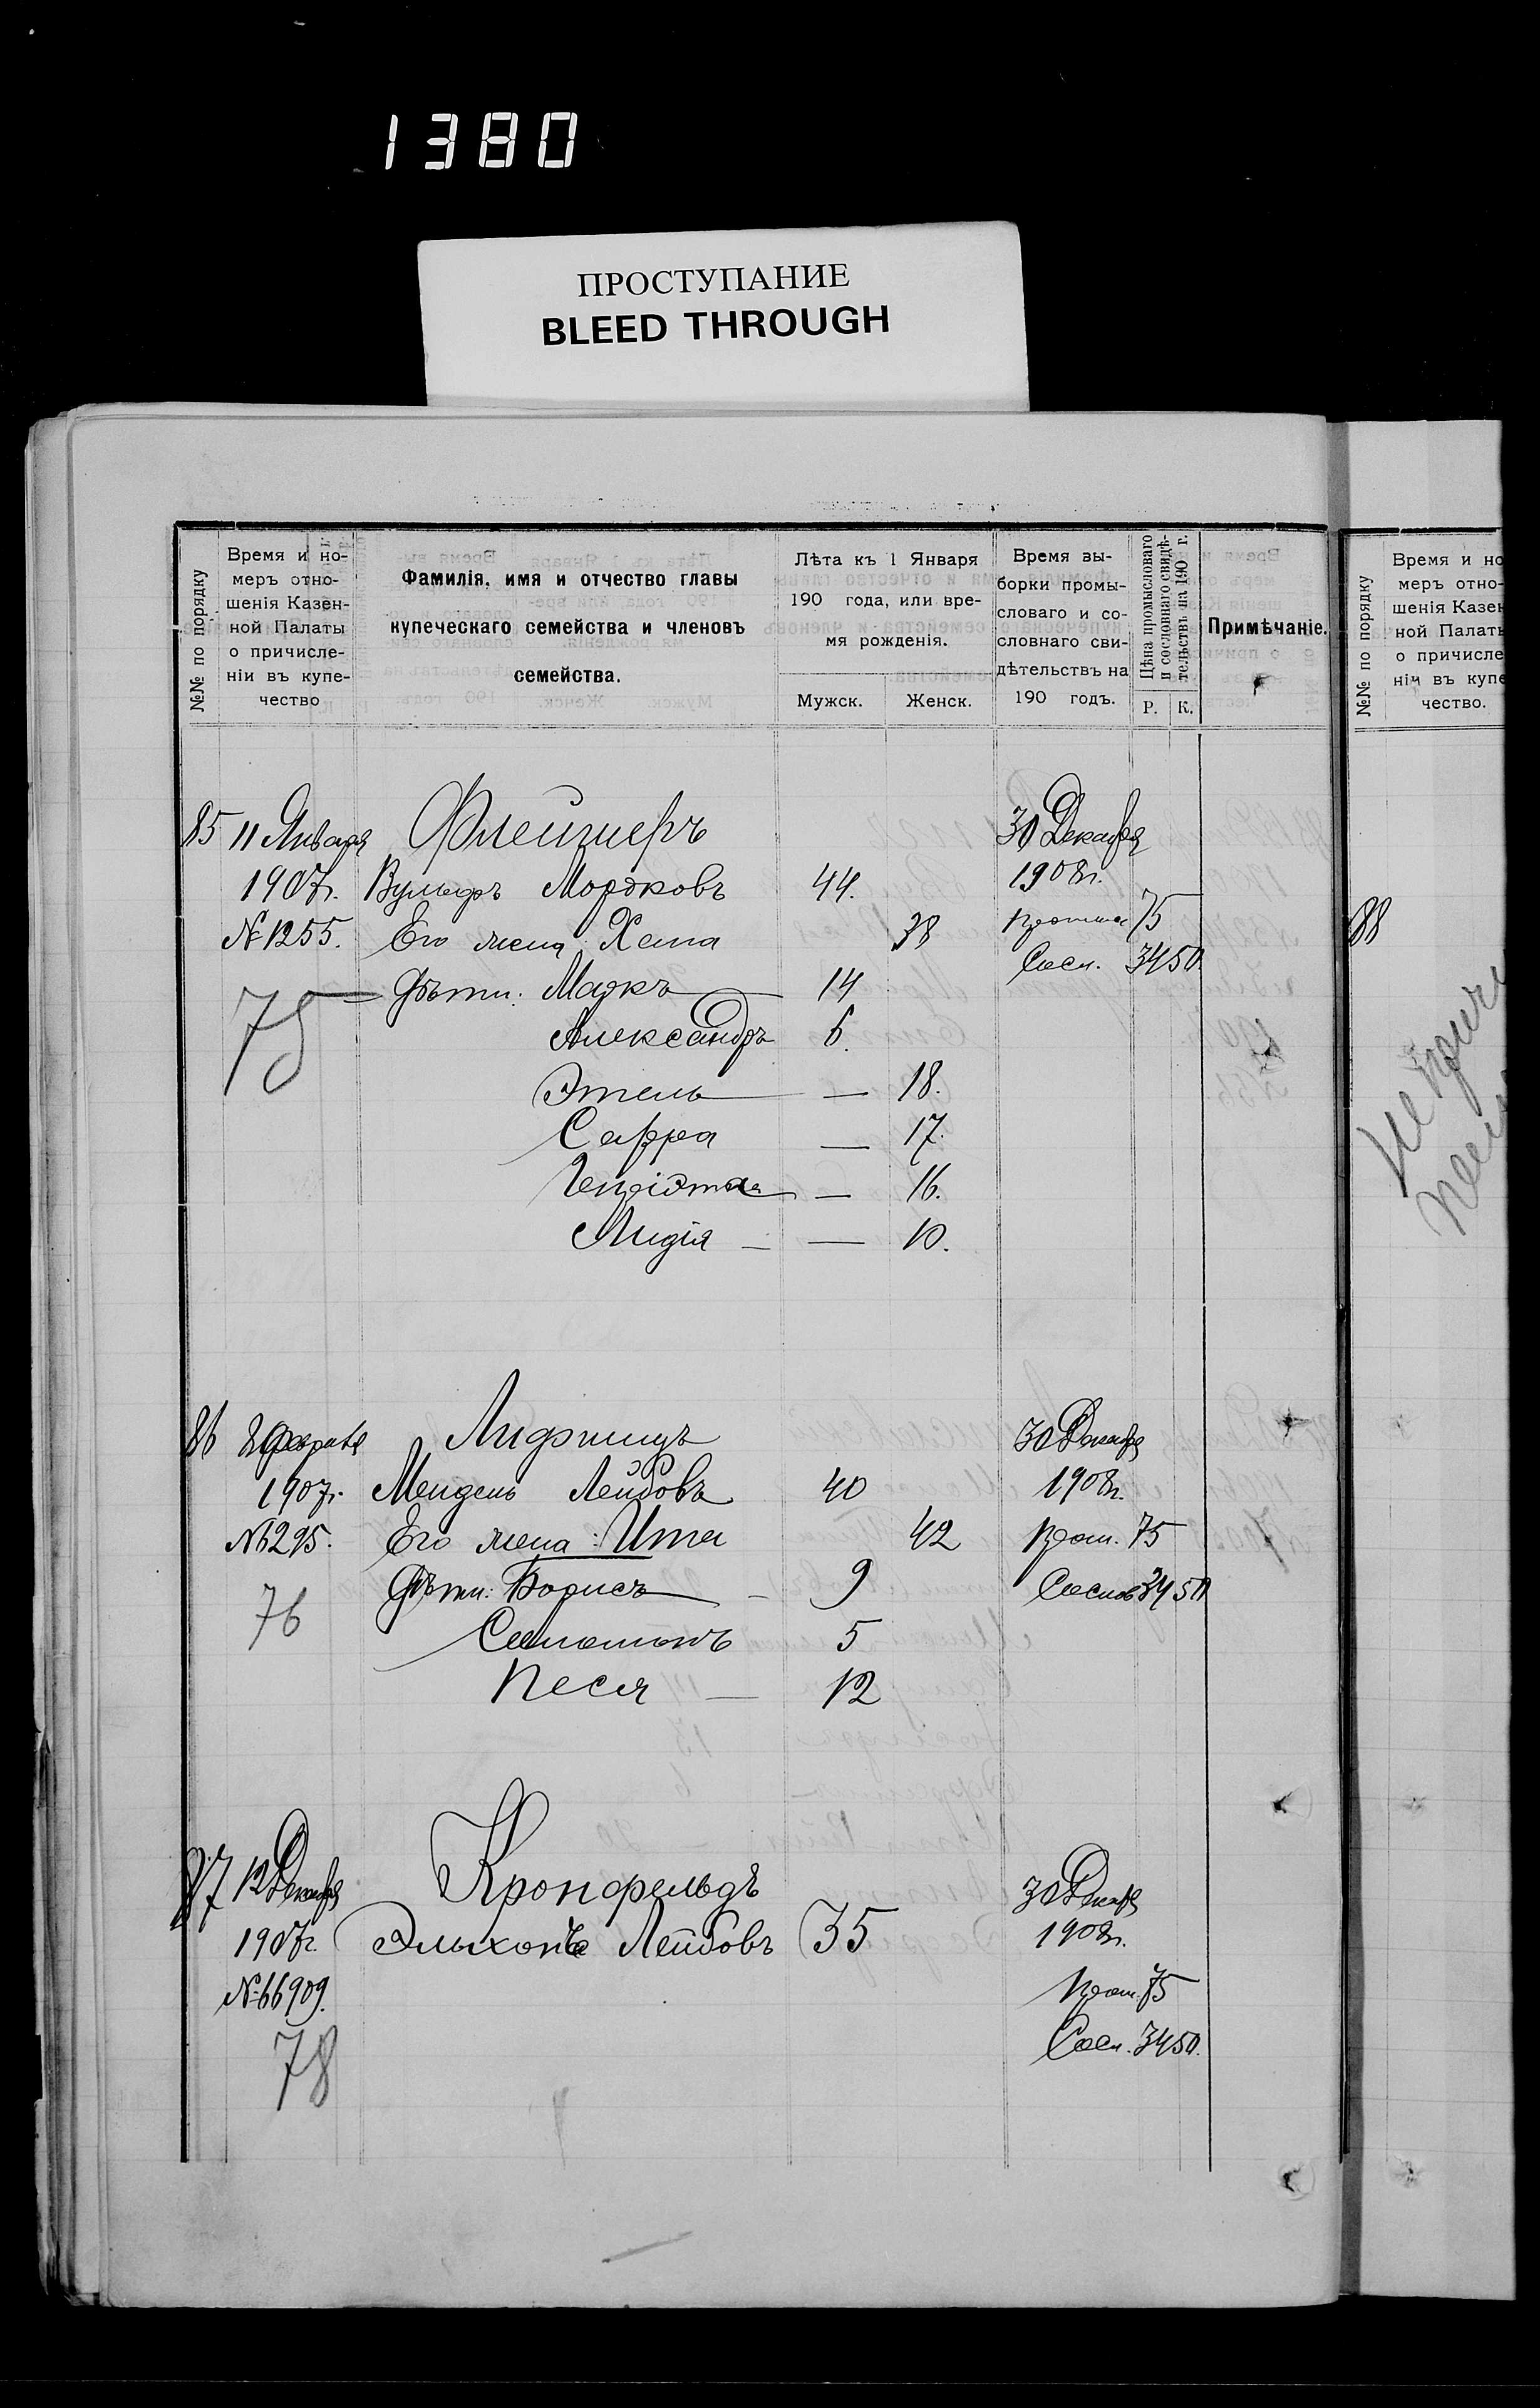 1380
ПРОСТУПАНИЕ
BLEED THROUGH
№№ по порядку
Время и но-
меръ отно-
шенія Казен-
ной Палаты
о причисле-
ніи въ купе-
чество
Фамилія, имя и отчество главы
купеческаго семейства и членовъ
семейства.
Лѣта къ 1 Января
190 года, или вре-
мя рожденія.
Мужск. Женск.
Время вы-
борки промы-
словаго и со-
словнаго сви-
дѣтельствъ на
190 годъ.
Цѣна промысловаго
и сословнаго свидѣ-
тельствъ на 190 г.
Р. К.
Примѣчаніе.
85 11 Января Флейшеръ 30 Декабря
1907г. Вульфъ Морджовъ 44. 1908г.
№ 1255. Его жена Хана 38 75
Сосл. 34 50
75 Дѣти: Маркъ 14
Александръ 6.
Этель — 18.
Сарра — 17.
Генріэтта — 16.
Лидія — — 10.
86 Февраля Лифшицъ 30 Декабря
1907г. Мендель Лейбовъ 40 1908г.
№6295. Его жена: Ита 42 Пром. 75
Дѣти: Борисъ — 9 Сослов 34 50
76
Соломонъ 5
Песя — 12
87 12 Декабря Кронфельдъ 30 Декабря
1907г. Лейбовъ 35 1908г.
№ 66909. Пром. 75
Сосл. 34 50.
78
№№ по порядку
Время и но
меръ отно-
шенія Казен
ной Палаты
о причисле
ніи въ купе
чество.
88
не